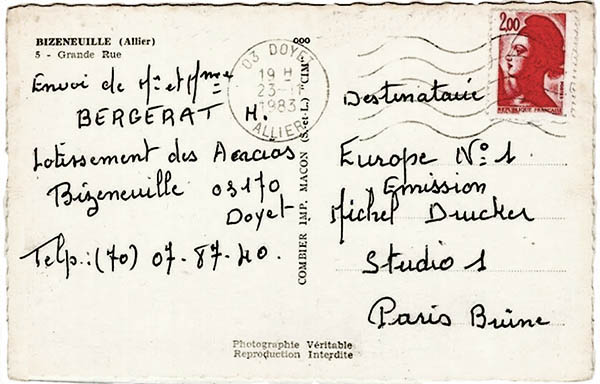 BIZENEUILLE (Allier)
5 - Grande Rue
Envoi de Mr et Mme
BERGERAT H.
Lotissement des Acacias
Bizeneuille 03170
Doyet
Telp.: (70) 07-87-40.
COMBIER IMP. MACON (S.-et-L.) "CIM"
03 DOYET
19 H
23-
1983
ALLIER
2,00
REPUBLIQUE FRANÇAISE
Destinataire
Europe N° 1
Emission
Michel Drucker
Studio 1
Paris Brune
Photographie Véritable
Reproduction Interdite